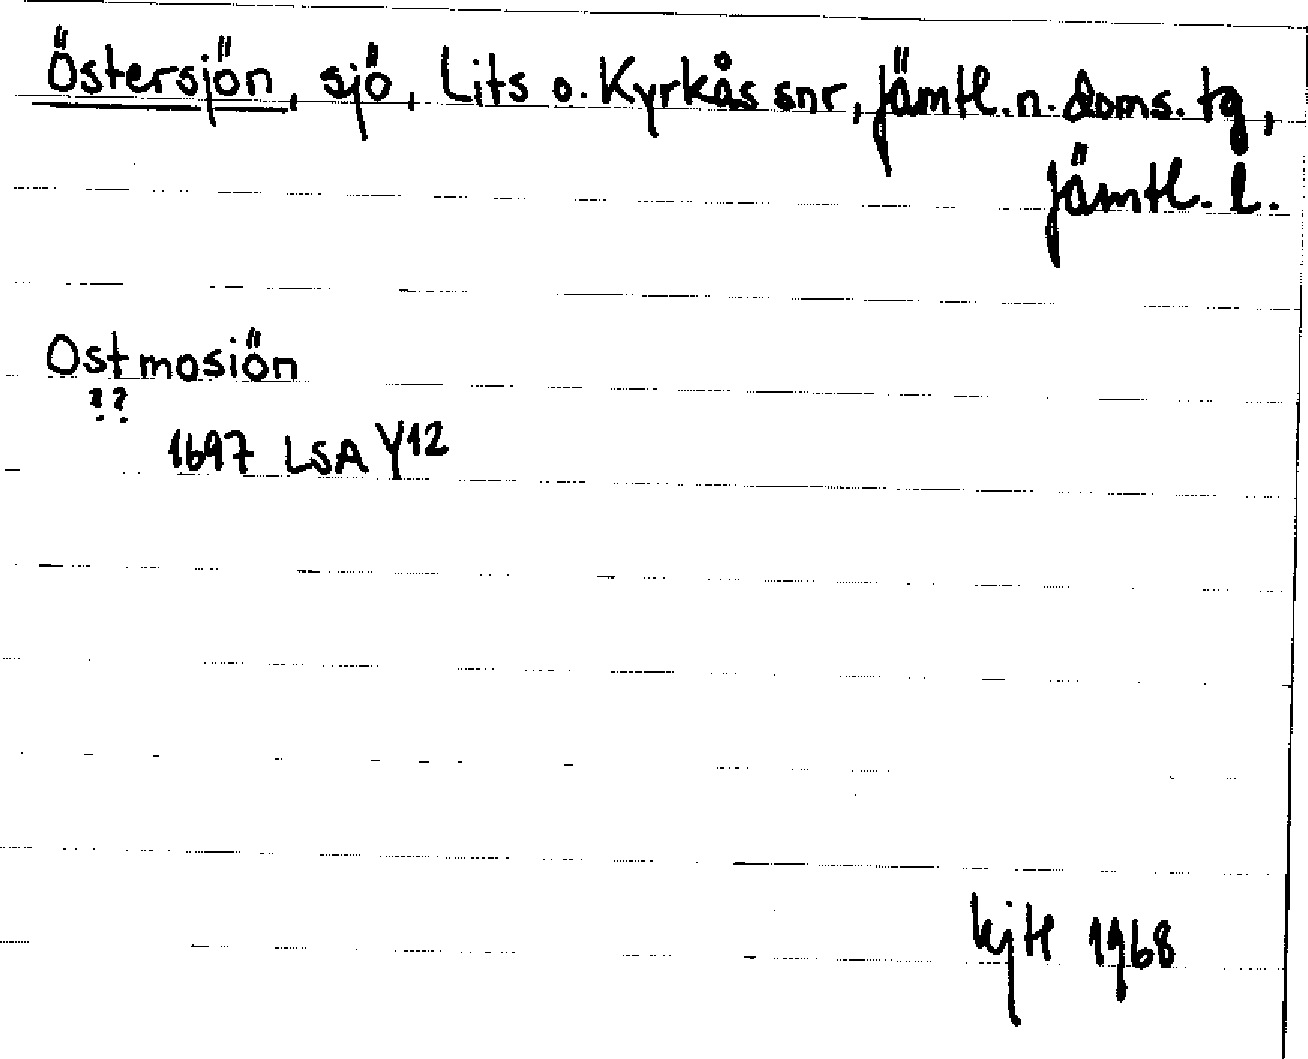 Östersjön, sjö, Lits o. Kyrkås snr, Jämtl. n. doms. tg,
Jämtl. l.
Ostmosiön
??
1697 LSA Y12
1968